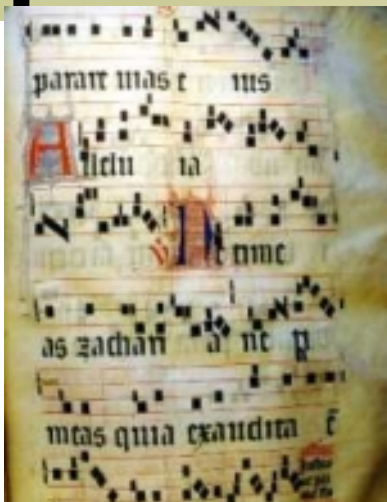 parare uias e ius
Alleluia
℣ Ne time
as zachari a ne p
meas quia exaudita ē